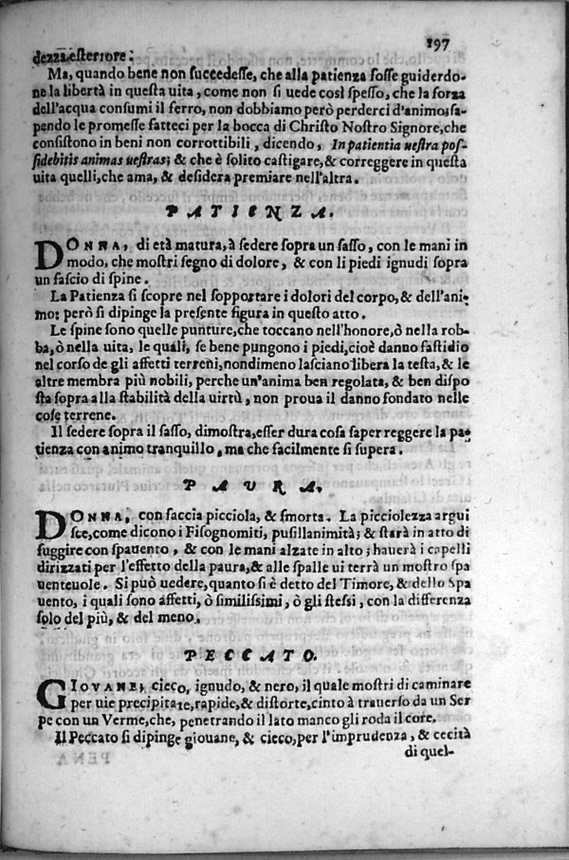 197
dezza esteriore:
Ma, quando bene non succedesse, che alla patienza fosse guiderdo-
ne la libertà in questa uita, come non si uede così spesso, che la forza
dell'acqua consumi il ferro, non dobbiamo però perderci d'animo; sa-
pendo le promesse fatteci per la bocca di Christo Nostro Signore, che
consistono in beni non corrottibili, dicendo, In patientia uestra pos-
sidebitis animas uestras; & che è solito castigare, & correggere in questa
uita quelli, che ama, & desidera premiare nell'altra.
PATIENZA.
DONNA, di età matura, à sedere sopra un sasso, con le mani in
modo, che mostri segno di dolore, & con li piedi ignudi sopra
un fascio di spine.
La Patienza si scopre nel sopportare i dolori del corpo, & dell'ani-
mo: però si dipinge la presente figura in questo atto.
Le spine sono quelle punture, che toccano nell'honore, ò nella rob-
ba, ò nella uita, le quali, se bene pungono i piedi, cioè danno fastidio
nel corso de gli affetti terreni, nondimeno lasciano libera la testa, & le
altre membra più nobili, perche un'anima ben regolata, & ben dispo
sta sopra alla stabilità della uirtù, non proua il danno fondato nelle
cose terrene.
Il sedere sopra il sasso, dimostra, esser dura cosa saper reggere la pa-
tienza con animo tranquillo, ma che facilmente si supera.
PAURA.
DONNA, con faccia picciola, & smorta. La picciolezza argui
sce, come dicono i Fisognomiti, pusillanimità; & starà in atto di
fuggire con spauento, & con le mani alzate in alto; hauerà i capelli
dirizzati per l'effetto della paura, & alle spalle ui terrà un mostro spa
uenteuole. Si può uedere, quanto si è detto del Timore, & dello Spa
uento, i quali sono affetti, ò similissimi, ò gli stessi, con la differenza
solo del più, & del meno.
PECCATO.
GIOVANE, cieco, ignudo, & nero, il quale mostri di caminare
per uie precipitate, rapide, & distorte, cinto à trauerso da un Ser
pe con un Verme, che, penetrando il lato manco gli roda il core.
Il Peccato si dipinge giouane, & cieco, per l'imprudenza, & cecità
di quel-